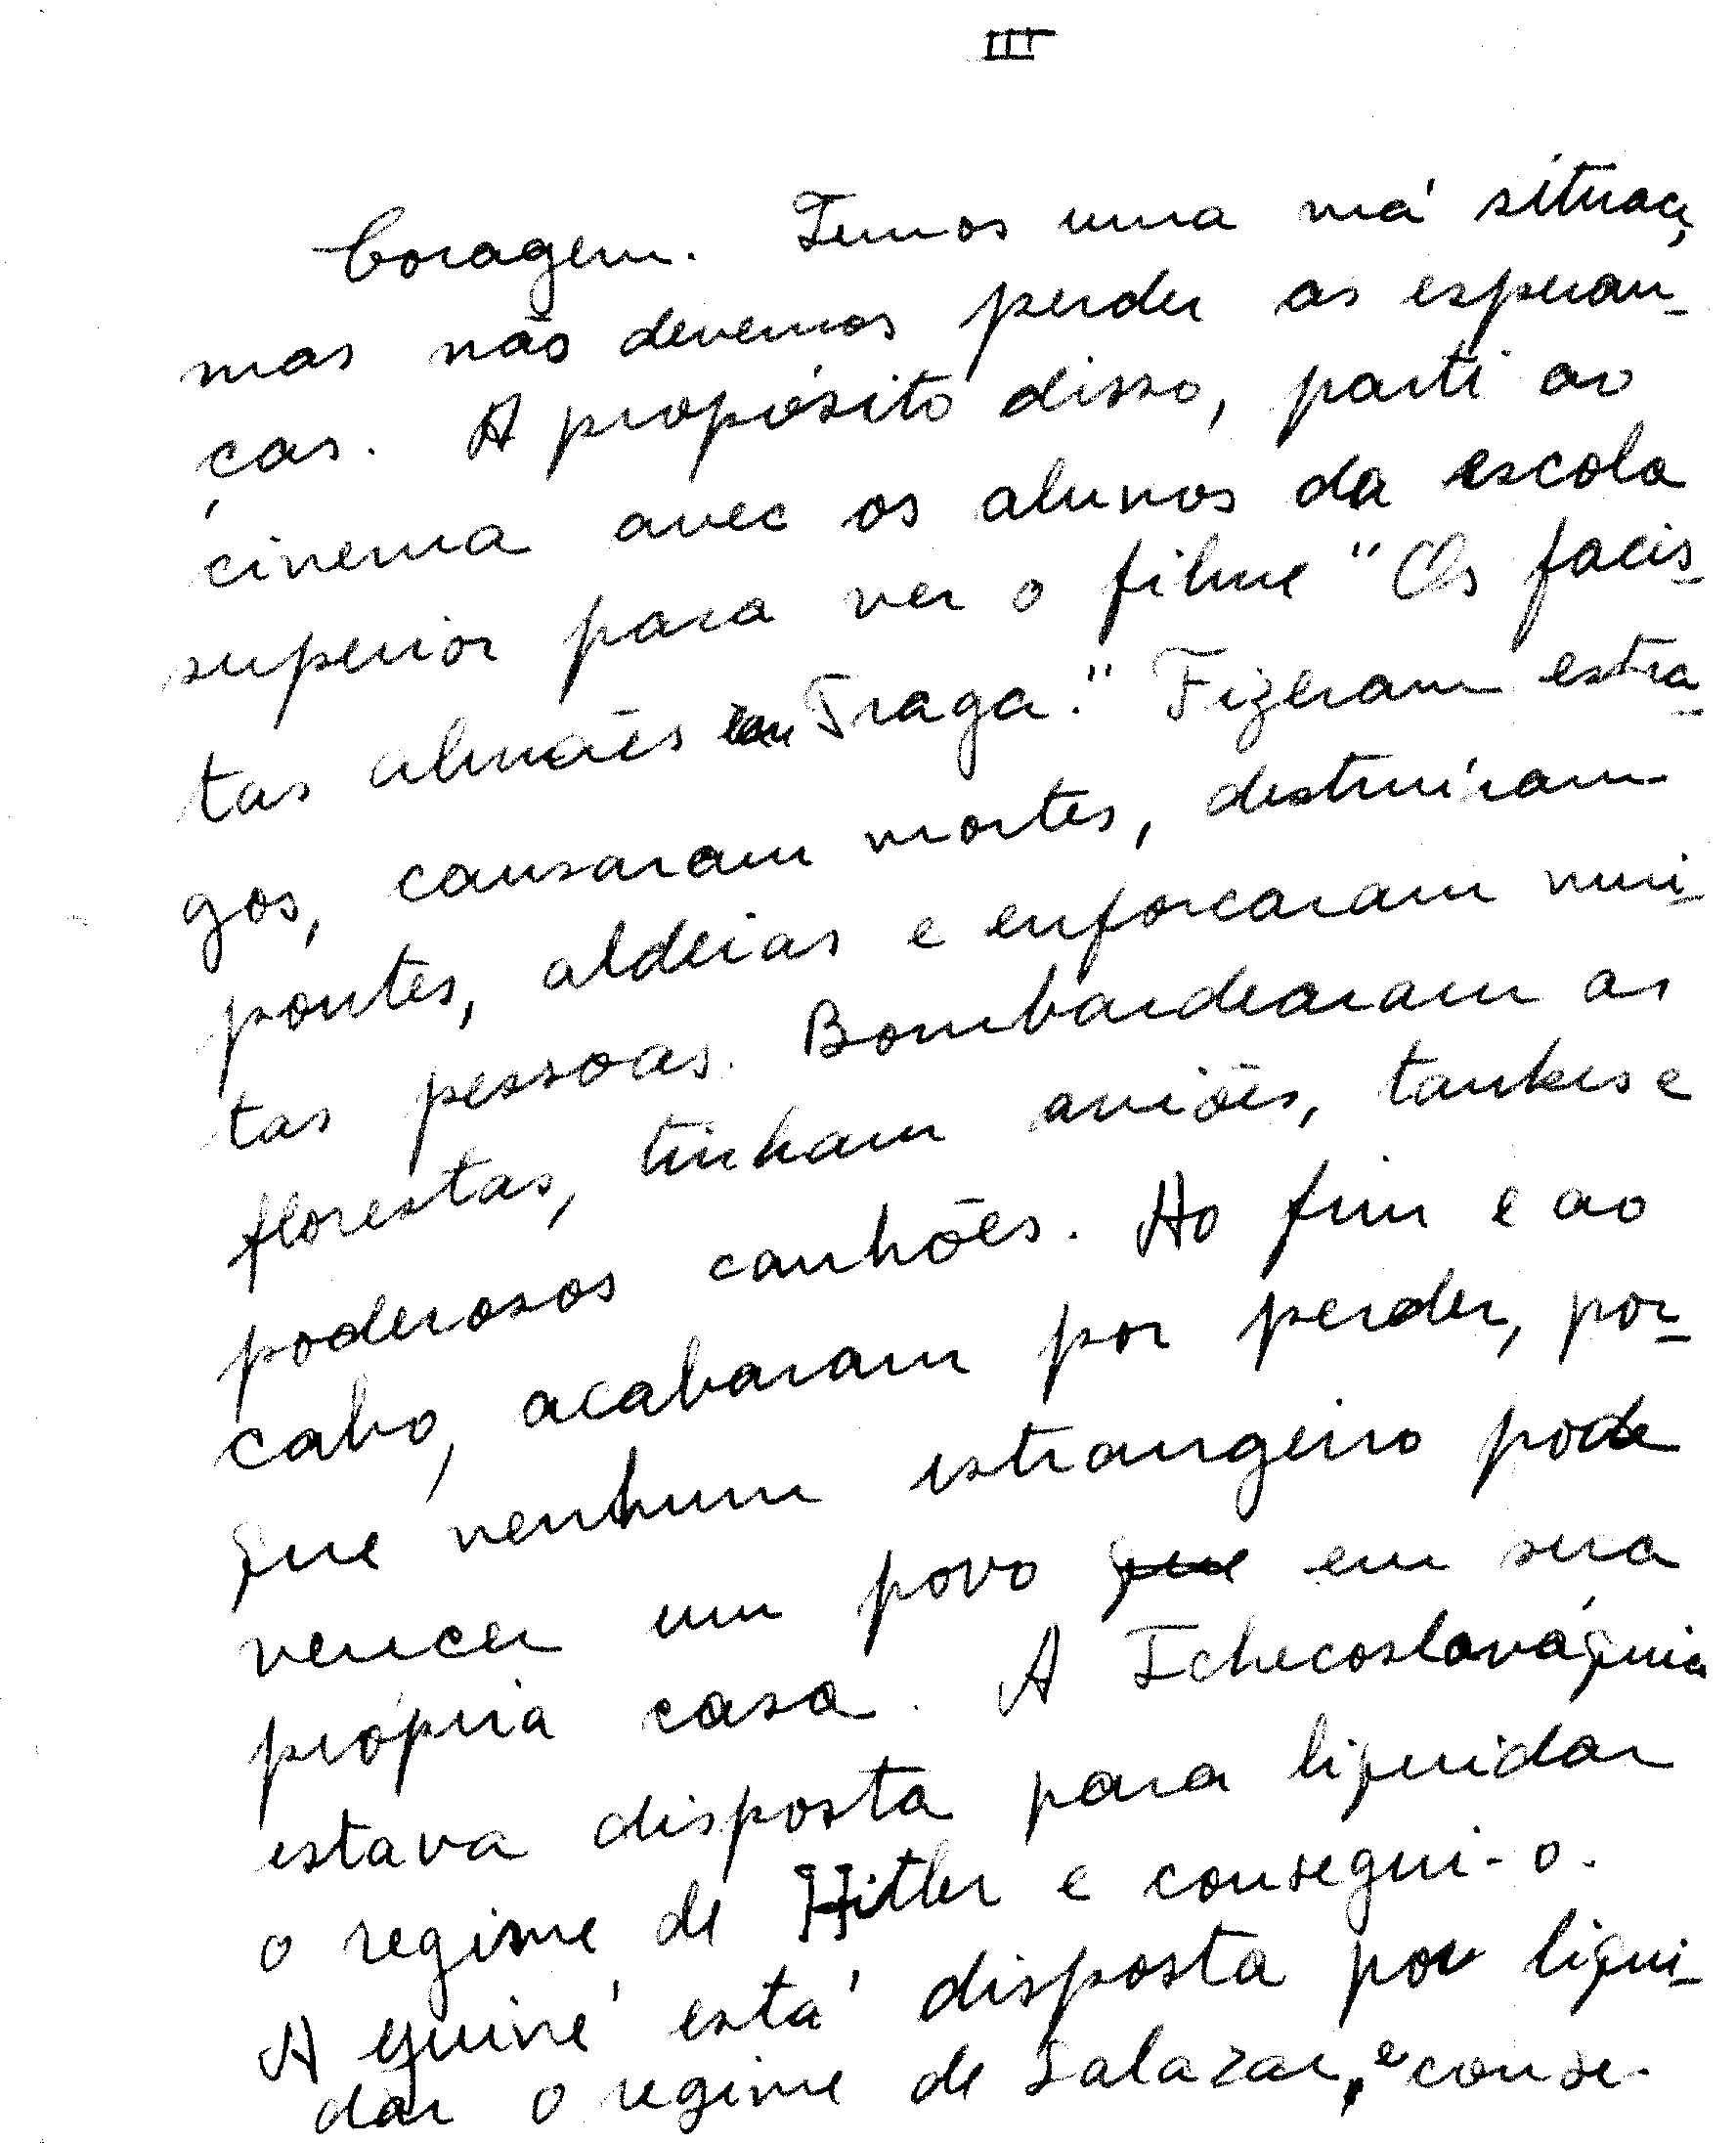 III
Coragem. Temos uma má situaç
mas não devemos perder as esperan-
ças. A propósito disso, parti ao
cinema avec os alunos da escola
superior para ver o filme "Os facis-
tas almães em Praga." Fizeram estra-
gos, causaram mortes, destruíram
pontes, aldeias e enforcaram mui-
tas pessoas. Bombardearam as
florestas, tinham aviões, tankes e
poderosos canhões. Ao fim e ao
cabo, acabaram por perder, por-
que nenhum estrangeiro pode
vencer um povo que em sua
própria casa. A Tchecoslováquia
estava disposta para liquidar
o regime de Hitler e consegui-o.
A Guiné está disposta por liqui-
dar o regime de Salazar, e conse-